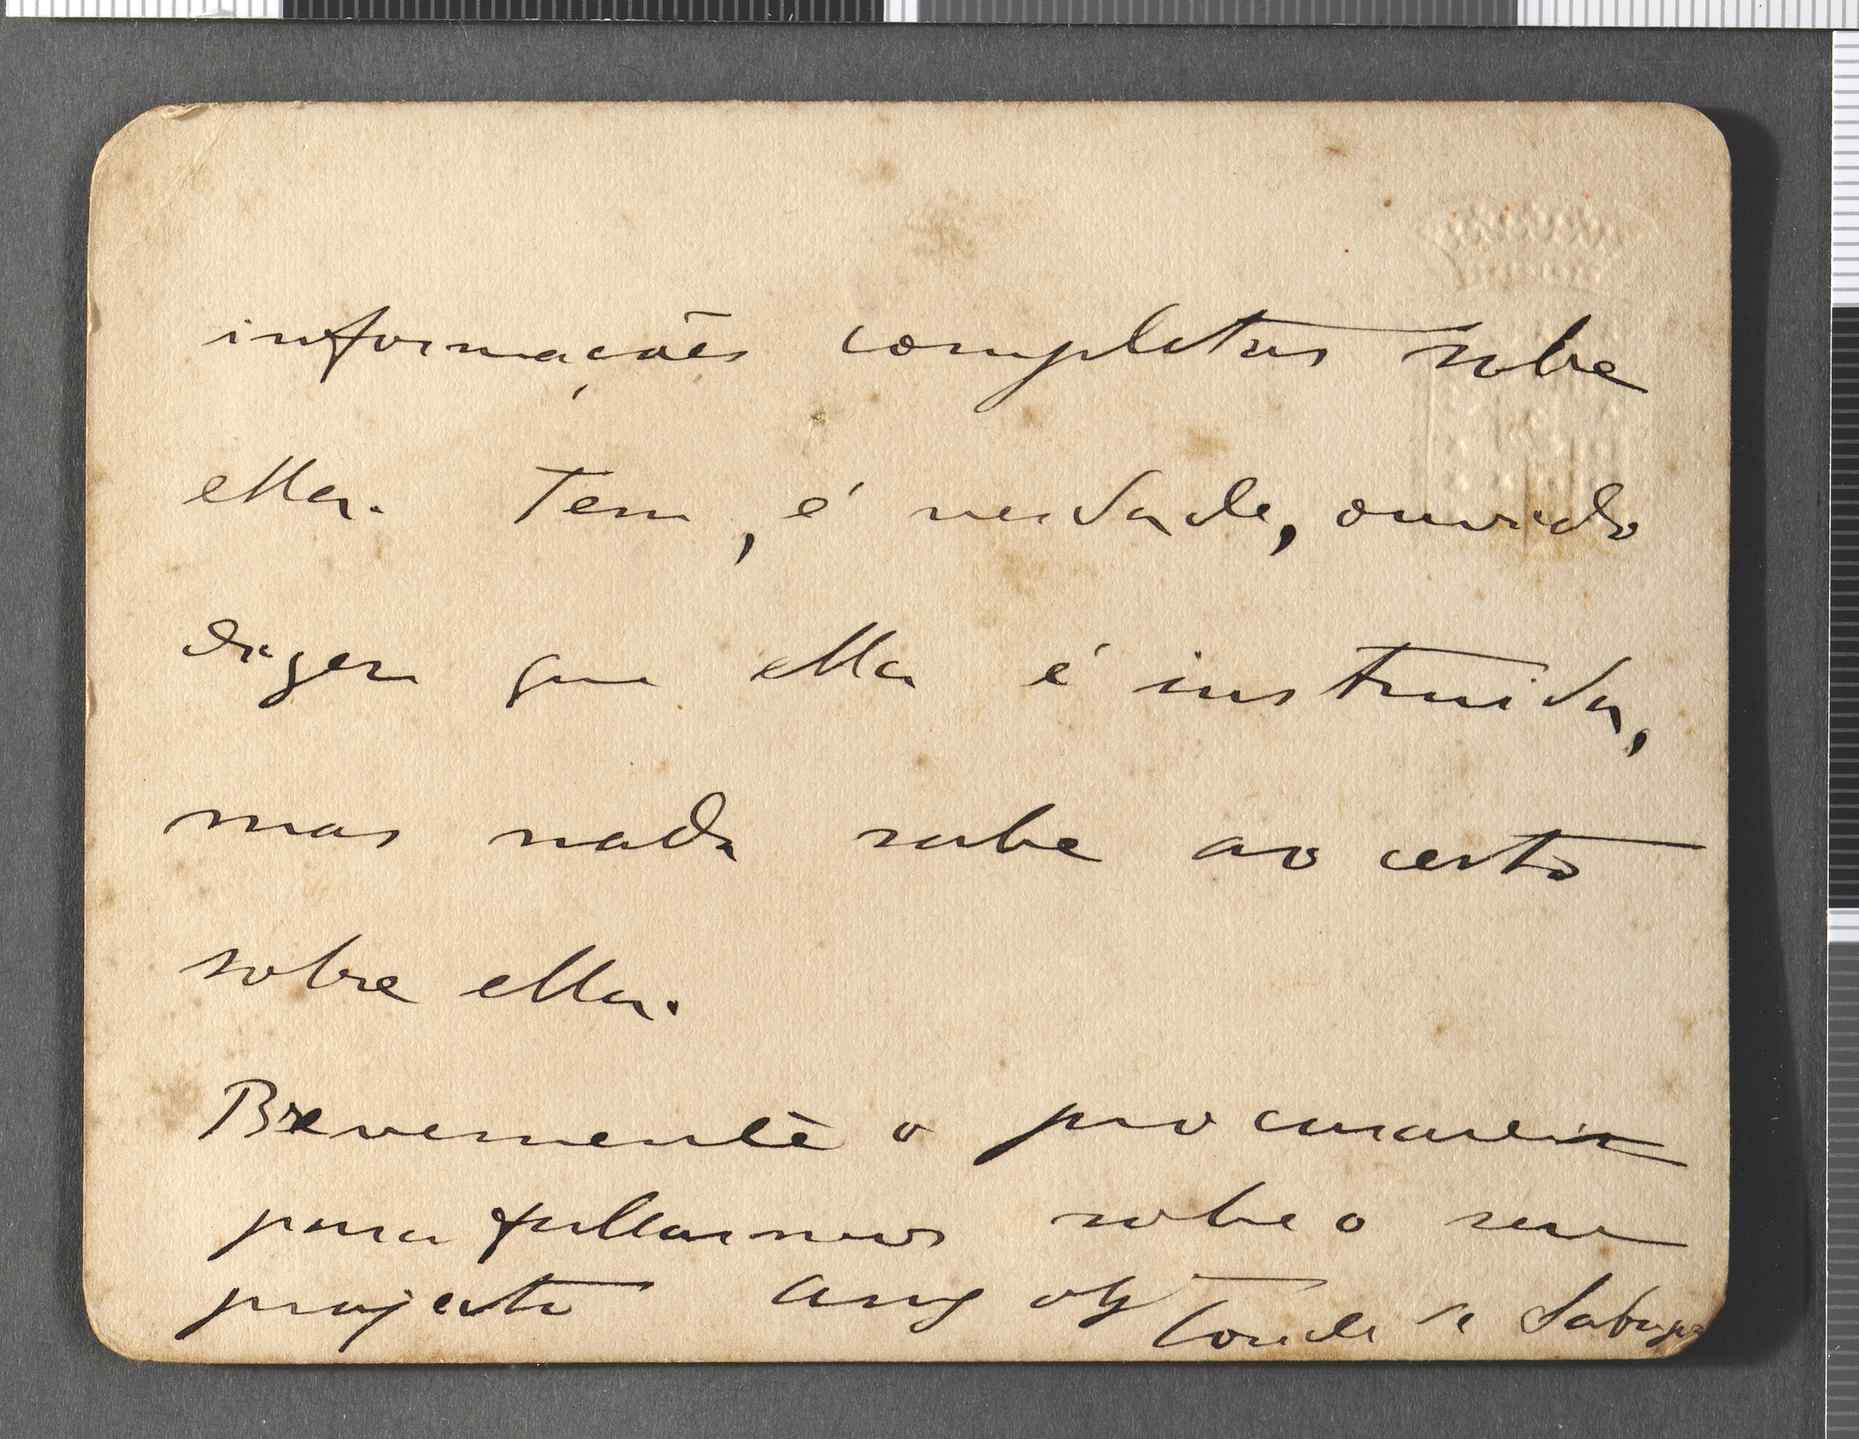 informações completas sobre
ella. Tem, é verdade, ouvido
dizer que ella é instruida,
mas nada sabe ao certo
sobre ella.
Brevemente o procurarei
para fallarmos sobre o seu
projecto Amg obg Conde de Sabugosa